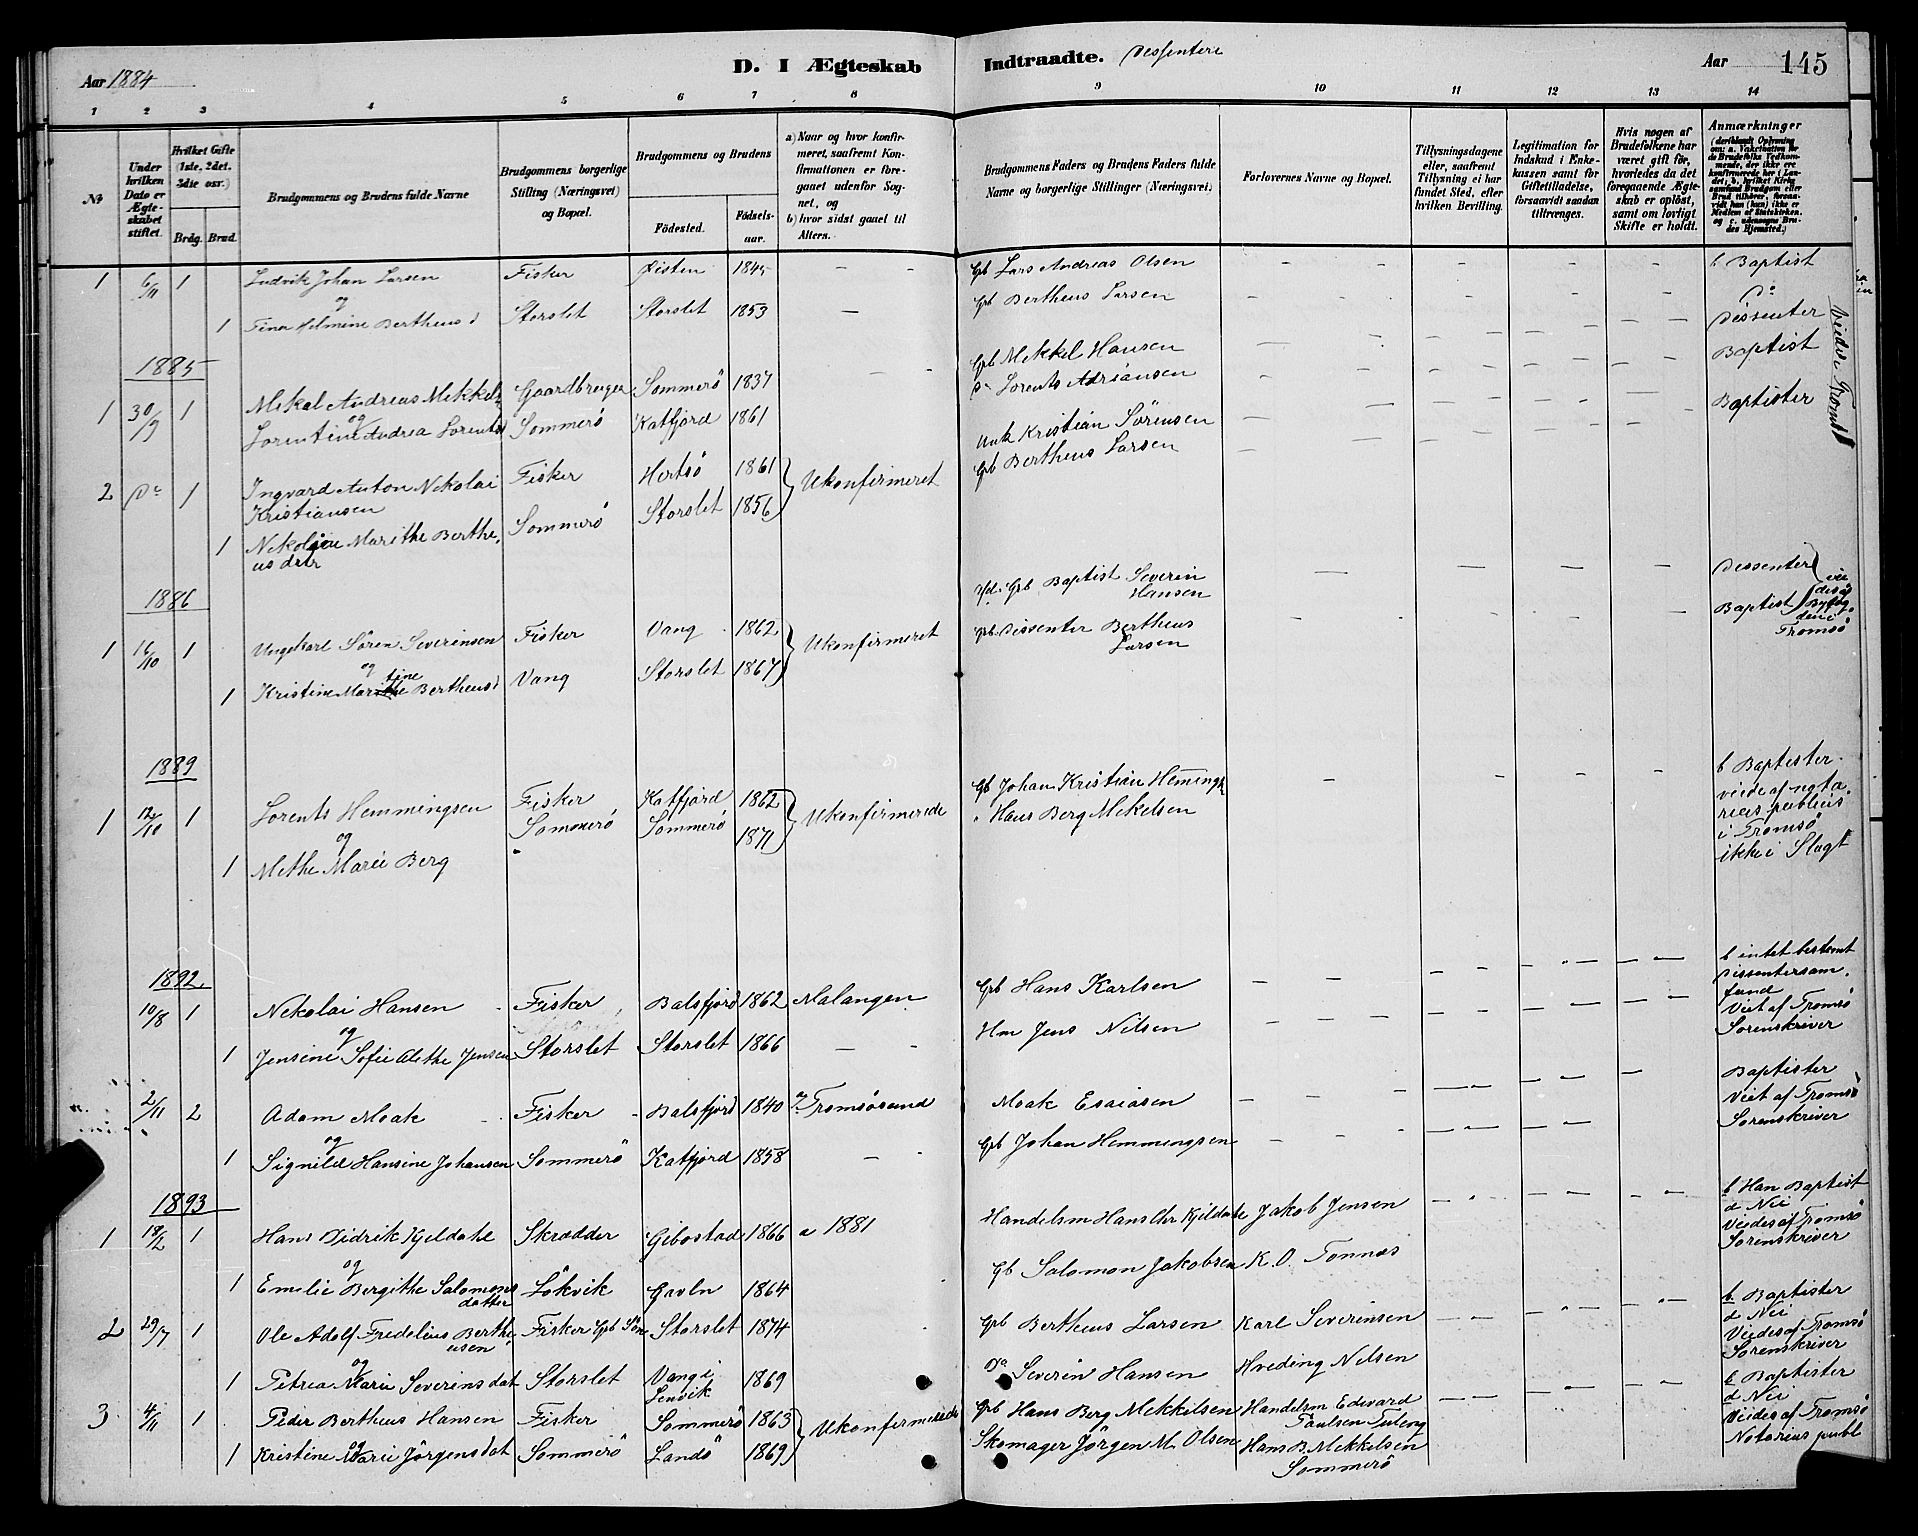 Aar 1884 D. I Ægteskab Indtraadte. Dessentere Aar 145
1 2 3 4 5 6 7 8 9 10 11 12 13 14
No
Under hvilken Dato er Ægteskabet stiftet.
Hvilket Gifte (1ste, 2det, 3die osv.)
Brdg. Brud.
Brudgommens og Brudens fulde Navne
Brudgommens borgerlige Stilling (Næringsvei) og Bopæl.
Brudgommens og Brudens
Fødested. Fødselsaar.
a) Naar og hvor konfirmeret, saafremt Konfirmationen er foregaaet udenfor Sognet, og
b) hvor sidst gaaet til Alters.
Brudgommens Faders og Brudens Faders fulde Navne og borgerlige Stillinger (Næringsvei).
Forlovernes Navne og Bopæl.
Tillysningsdagene eller, saafremt Tillysning ei har fundet Sted, efter hvilken Bevilling.
Legitimation for Indskud i Enkekassen samt for Giftetilladelse, forsaavidt saadan tiltrænges.
Hvis nogen af Brudefolkene har været gift før, hvorledes da det foregaaende Ægteskab er opløst, samt om lovligt Skifte er holdt.
Anmærkninger
1 6/11 1 Ludvik Johan Larsen Fisker Øisten 1845 — — Gb Lars Andreas Olsen — — — — — b Baptist
og
1 Tina Helmine Bertheusd Storslet Storslet 1853 — Grb Bertheus Larsen — — — — — Do
1885
1 30/9 1 Mekal Andreas Mekkels Gaardbruger Sommerö 1837 — — Grb Mekkel Hansen — — — — — Dessenter
og
Lorentine Andrea Lorentsd Sommerö Katfjord 1861 Do Lorents Adriansen — — — — — Baptist
2 Do 1 Ingvard Anton Nikolai Fisker Hertsö 1861 Ukonfirmeret Unk Kristian Sörensen — — — — — Baptister
Kristiansen
1 Nekoline Marithe Berthe, Sommerö Storslet 1856 Grb Bertheus Larsen — — — — —
us dttr
Viede i Tromsö
1886
1 16/10 1 Ungekarl Sören Severinsen Fisker Vang 1862 Ukonfirmeret Grb Baptist Severin Hansen — — — — — Dessenter
og
1 Kristine Martine Bertheusd Vang Storslet 1867 Grb Dissenter Bertheus Larsen — Baptist
Tromsö
1889
1 12/10 1 Lorents Hemmingsen Fisker Katfjord 1862 Ukonfirmerede Gb Johan Kristian Hemmings — — — — b Baptister
og Sommerö Sommerö 1871 " Hans Berg Mekelsen viede af nota
1 Methe Marie Berg rius publicus
i Tromsö
ikke i Slagt
1892
10/8 1 Nekolai Hansen Fisker Balsfjord 1862 Malangen Grb Hans Karlsen — — — — — b intet bestemt
og Dissentersam,
fund
1 Jensine Sofie Alethe Jensen Storslet Storslet 1866 — — Hm Jens Nilsen — — — — — Viet af Tromsö
Sorenskriver
2/11 2 Adam Moak Fisker Balsfjord 1840 Tromsösund Moak Esaiasen — — — — — Baptister
og Viet af Tromsö
1 Signild Hansine Johansen Sommerö Katfjord 1858 — Grb Johan Hemmingsen — — — — Sorenskriver
1893
1 18/2 1 Hans Didrik Kjeldahl Skrædder Gibostad 1866 a 1881 Handelsm Hans Chr Kjeldahl Jakob Jensen — — — — b Han Baptist
og d Nei
Viedes af Tromsö
1 Emilie Bergithe Salomons Lökvik 1864 Gb Salomon Jakobsen K. O. Tonnæs Sorenskriver
datter
2 29/7 1 Ole Adolf Fredelius Berthe Fisker Grb Sön Storslet 1874 Grb Bertheus Larsen Karl Severinsen — — — — b. Baptister
usen d Nei
og Viedes af Tromsö
1 Petrea Marie Severinsdat Storslet Vang i 1869 Do Severin Hansen Hveding Nilsen Sorenskriver
Lenvik
3 4/11 1 Peder Bertheus Hansen Fisker Sommerö 1863 Ukonfirmerede Grb Hans Berg Mekkelsen Handelsm Edevard — — — — b Baptister
Paulsen Tuleng d Nei
og Viedes af Tromsö
1 Kristine Marie Jörgensdat Sommerö Landö 1869 Skomager Jörgen M. Olsen Hans B. Mekkelsen Notarius publ
Sommerö